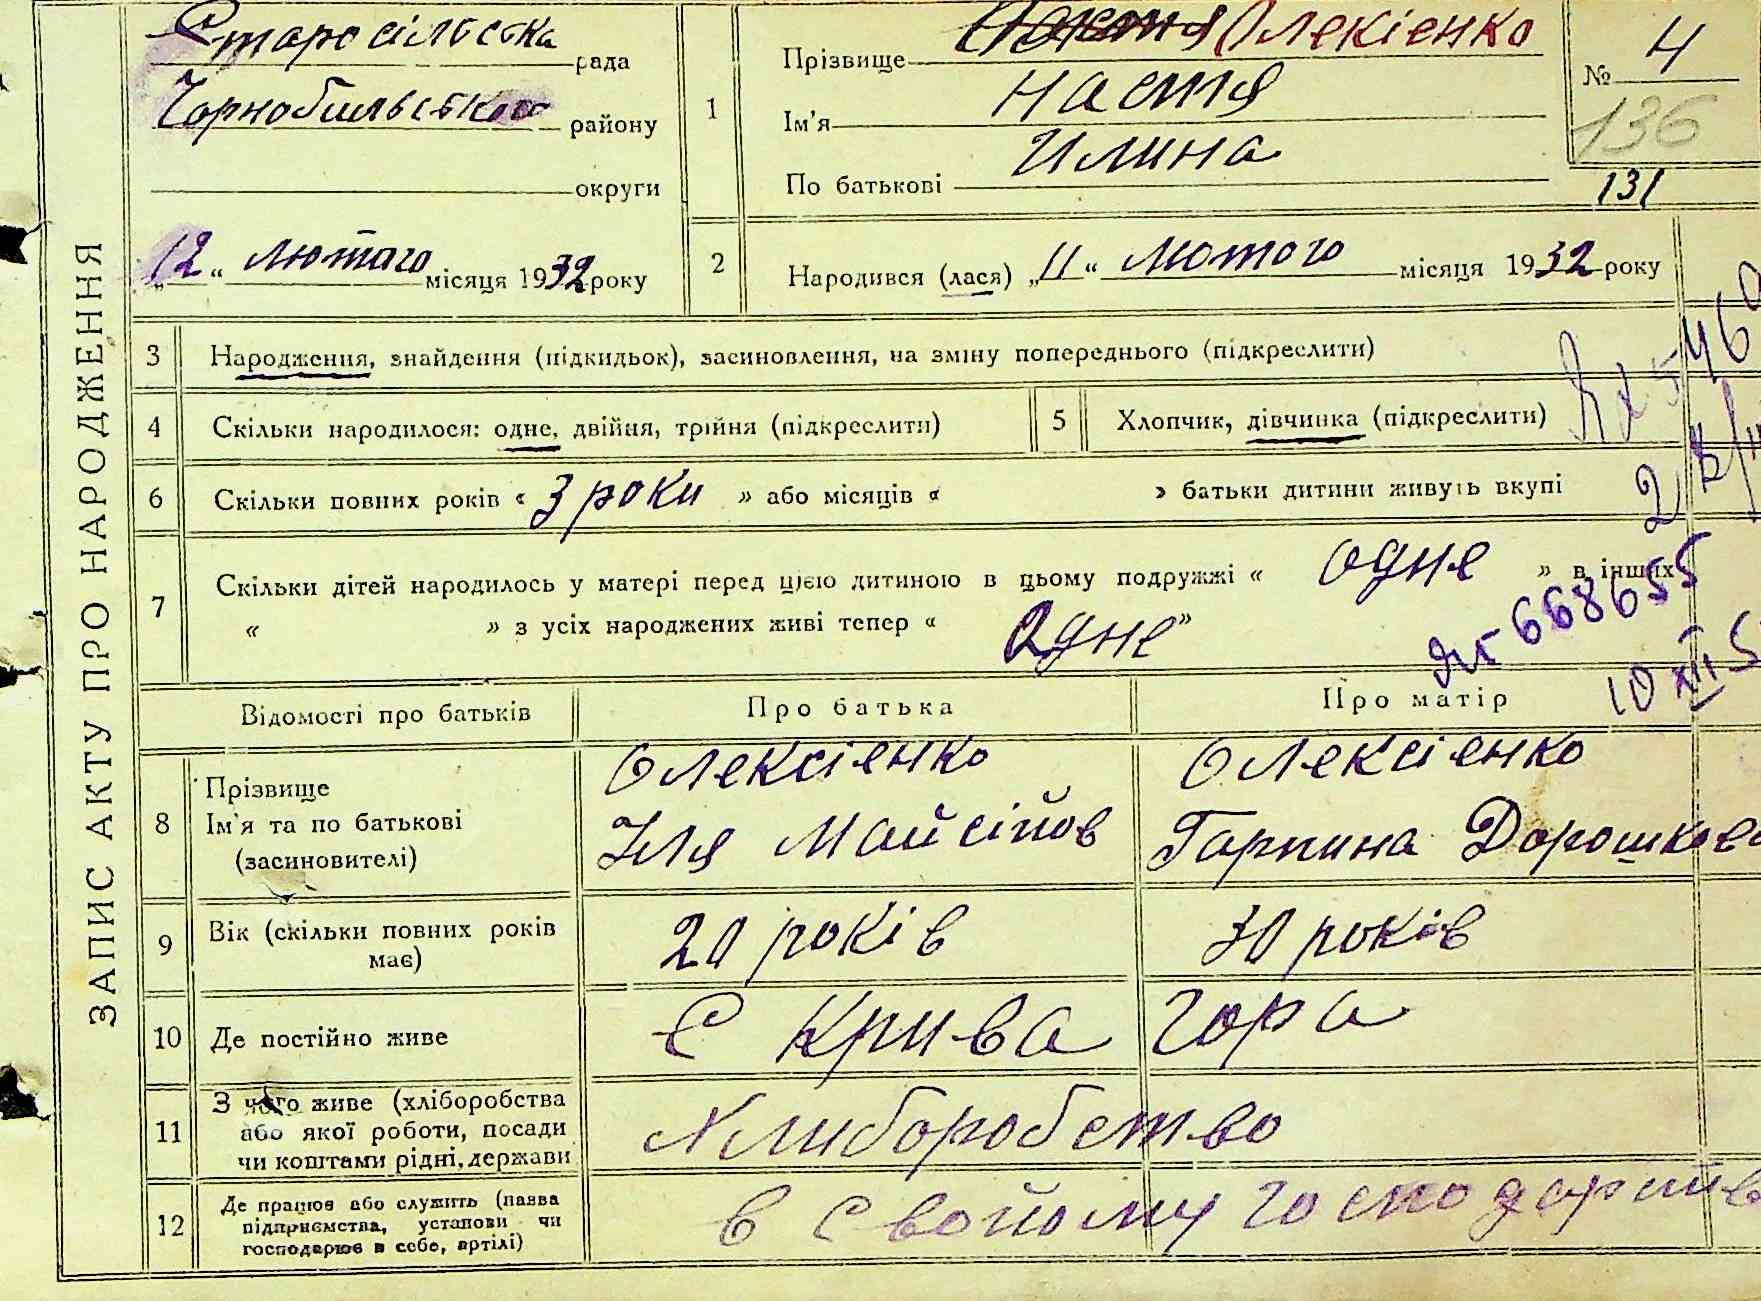 ЗАПИС АКТУ ПРО НАРОДЖЕННЯ
Старосільська рада
Чорнобильського району
округи
„12“ лютаго місяця 1932 року
1
Прізвище Олекієнко
Ім'я Настя
По батькові Илина
№ 4
136
131
2
Народився (лася) „11“ лютого місяця 1932 року
3 Народження, знайдення (підкидьок), засиновлення, на зміну попереднього (підкреслити)
4 Скільки народилося: одне, двійня, трійня (підкреслити)
5 Хлопчик, дівчинка (підкреслити)
6 Скільки повних років « 3 роки » або місяців « » батьки дитини живуть вкупі
7 Скільки дітей народилось у матері перед цією дитиною в цьому подружжі « одне » в інших
« » з усіх народжених живі тепер « одне »
668655
10 XII 5
Відомості про батьків Про батька Про матір
8 Прізвище Ім'я та по батькові (засиновителі)
Олексієнко
Іля Майсійов
Олексієнко
Гарпина Дорошкова
9 Вік (скільки повних років має) 20 років 30 років
10 Де постійно живе С Крива Гора
11 З чого живе (хліборобства або якої роботи, посади чи коштами рідні, держави Хлиборобство
12 Де працює або служить (назва підприємства, установи чи господарює в себе, артілі) в свойому господарстві